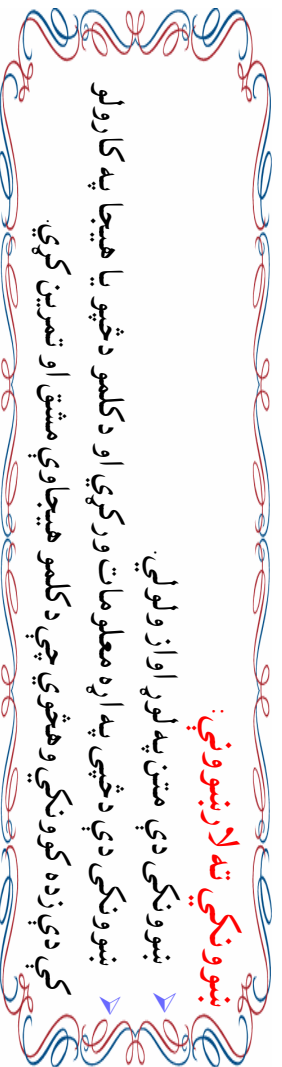 ښوونکي ته لارښوونې:
ښوونکی دې متن په لوړ اواز ولولي.
ښوونکی دې دڅپې په اړه معلومات ورکړي او د کلمو د څپو يا هيجا په کارولو
کې دې زده کوونکي وهڅوي چې د کلمو هيجاوې مشق او تمرين کړي.